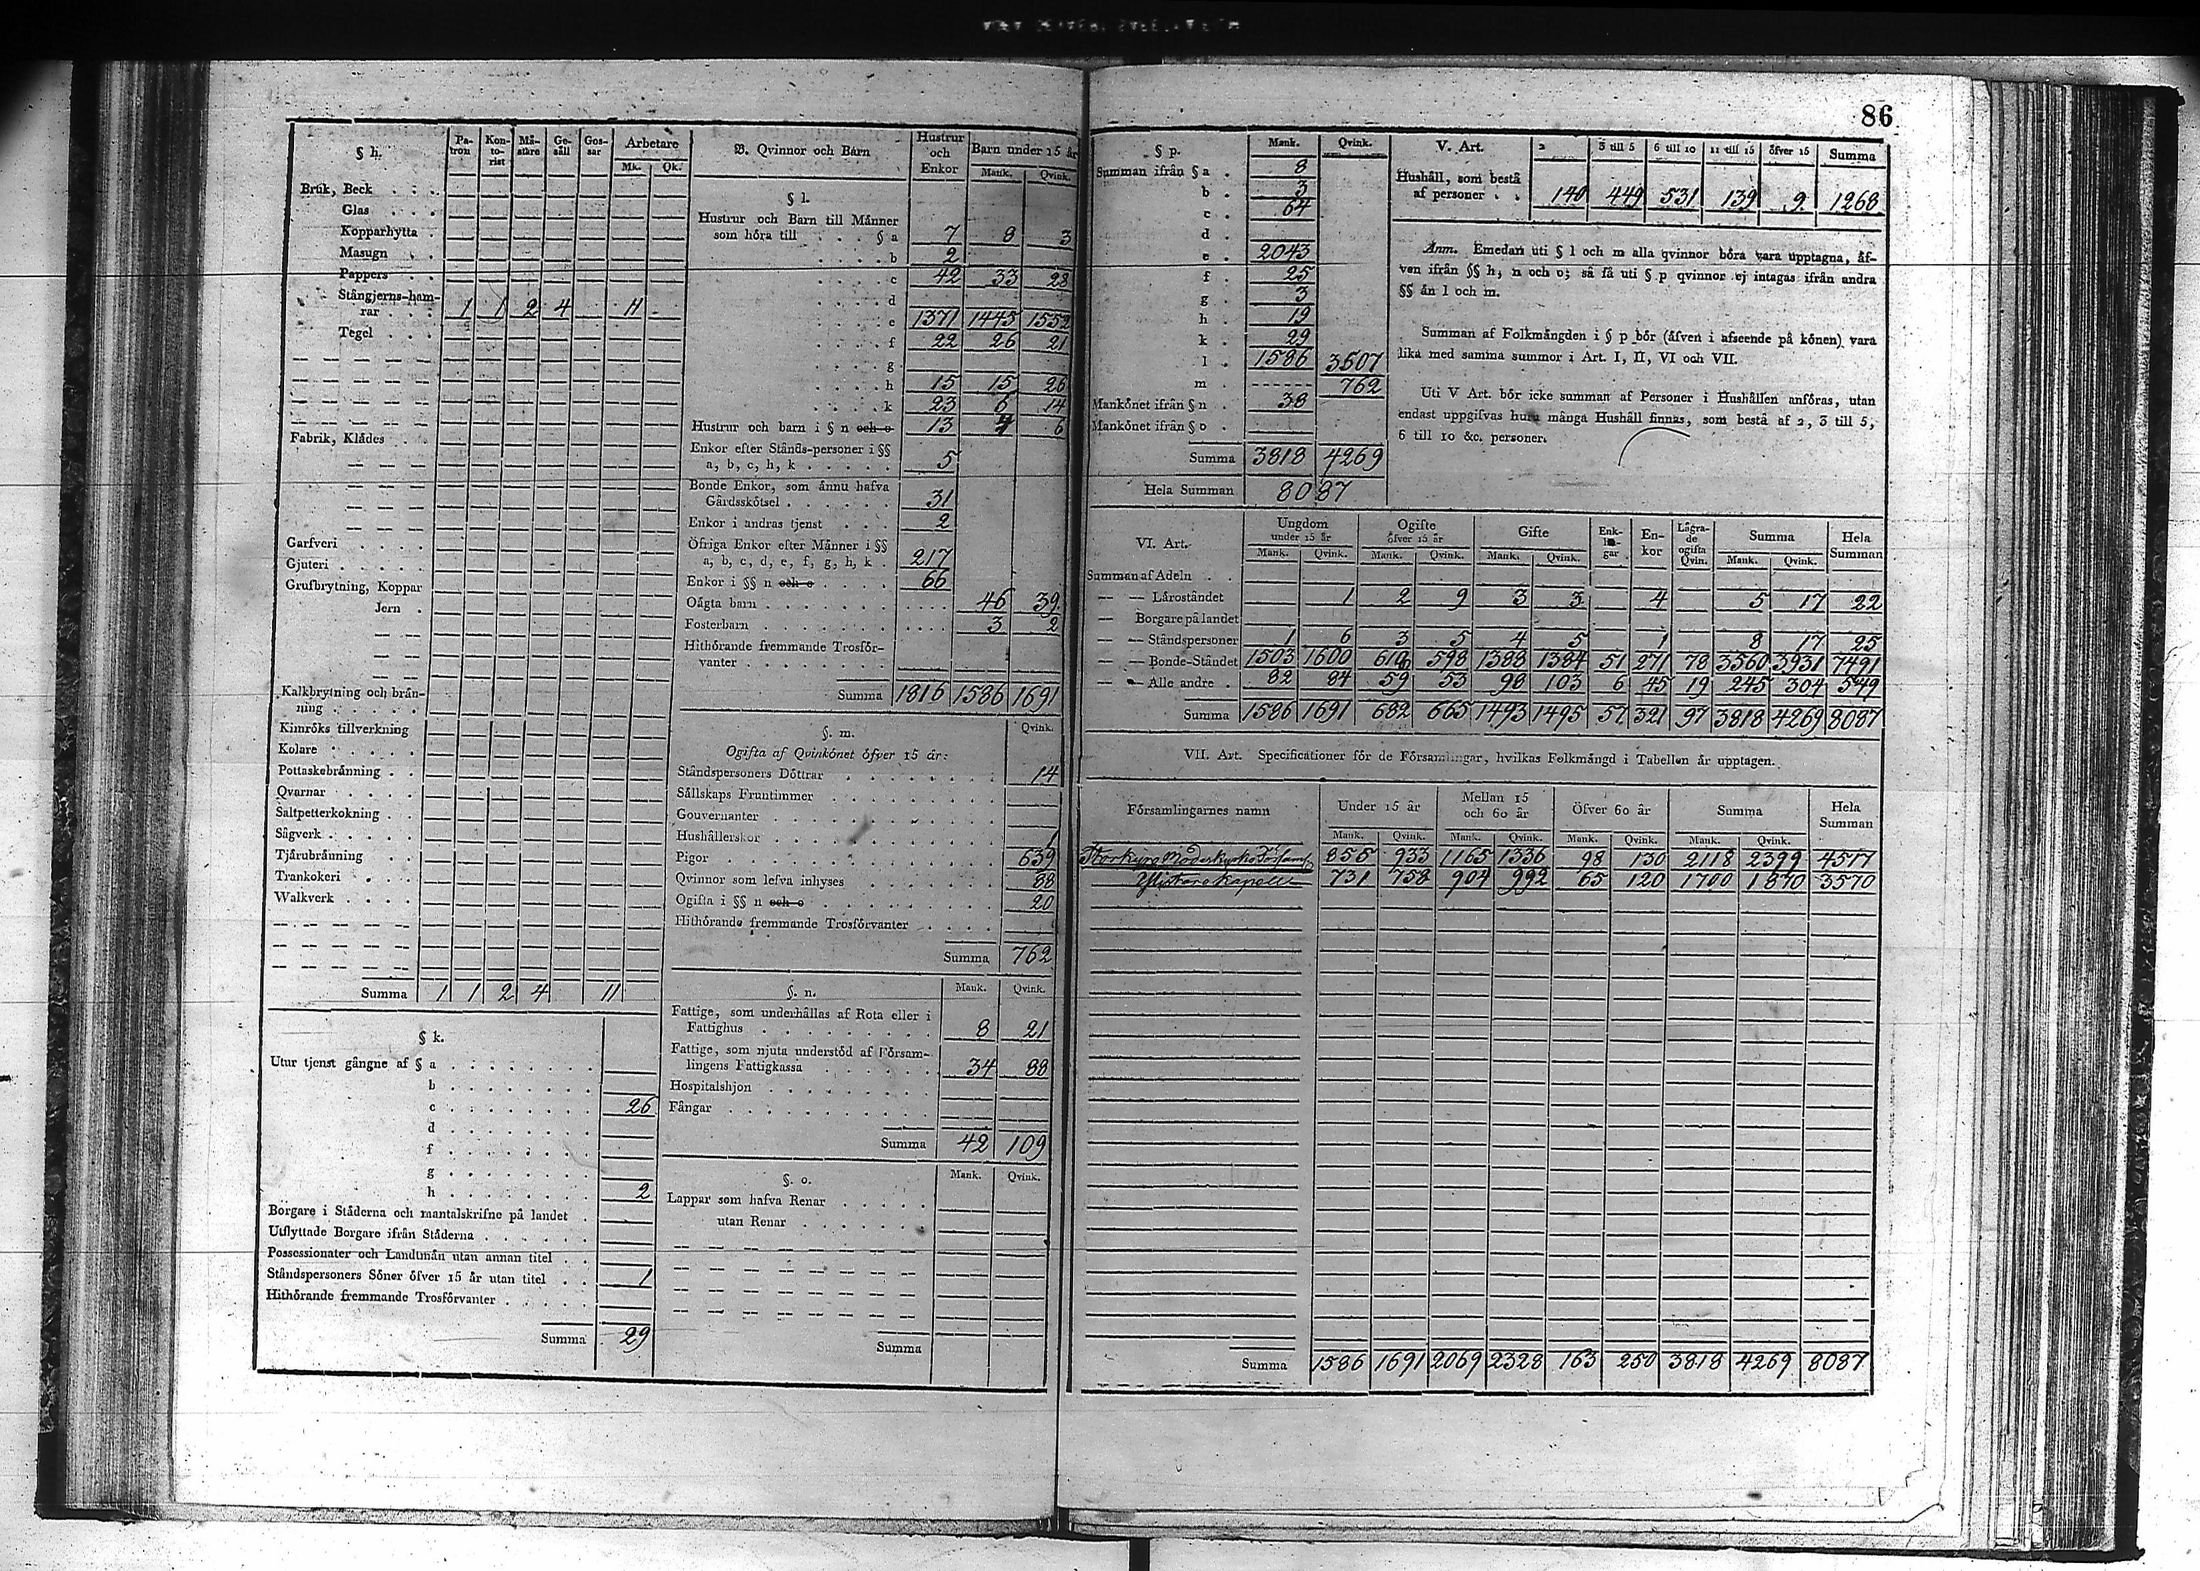 86
§ h. Patron Kontorist Måstare Gesäll Gossar Arbetare
Mk. Qk.
Bruk, Beck . . .
Glas . . .
Kopparhytta .
Masugn . .
Pappers . .
Stångjerns-hamrar . . . 1 1 2 4 11
Tegel . . .
Fabrik, Klådes . .
Garfveri . . . .
Gjuteri . . . .
Grufbrytning, Koppar
Jern .
Kalkbrytning och brånning . . . . .
Kimröks tillverkning
Kolare . . . . .
Pottaskebrånning . .
Qvarnar . . . .
Saltpetterkokning . .
Sågverk . . . . .
Tjårubrånning . .
Trankokeri . . .
Walkverk . . . .
Summa 1 1 2 4 11
§ k.
Utur tjenst gångne af § a . . . . . . .
b . . . . . . .
c . . . . . . . 26
d . . . . . . .
f . . . . . . .
g . . . . . . .
h . . . . . . . 2
Borgare i Ståderna och mantalskrifne på landet .
Utflyttade Borgare ifrån Ståderna . . . . .
Possessionater och Landtmån utan annan titel . .
Ståndspersoners Söner öfver 15 år utan titel . . 1
Hithörande fremmande Trosförvanter . . . .
Summa 29
B. Qvinnor och Barn Hustrur och Enkor Barn under 15 år
Mank. Qvink.
§ l.
Hustrur och Barn till Månner
som höra till . . . § a 7 8 3
. . . . b 2
. . . . c 42 33 28
. . . . d
. . . . e 1371 1443 1552
. . . . f 22 26 21
. . . . g
. . . . h 15 15 26
. . . . k 23 6 14
Hustrur och barn i § n och o 13 4 6
Enkor efter Stånds-personer i §§
a, b, c, h, k . . . . . 5
Bonde Enkor, som ånnu hafva
Gårdsskötsel . . . . . . 31
Enkor i andras tjenst . . . 2
Öfriga Enkor efter Månner i §§
a, b, c, d, e, f, g, h, k . 217
Enkor i §§ n och o . . . . 66
Oågta barn . . . . . . . . 46 39
Fosterbarn . . . . . . . . 3 2
Hithörande fremmande Trosförvanter . . . . . . .
Summa 1816 1586 1691
§. m. Qvink.
Ogifta af Qvinkönet öfver 15 år:
Ståndspersoners Döttrar . . . . . . . 14
Sållskaps Fruntimmer . . . . . . . .
Gouvernanter . . . . . . . . . .
Hushållerskor . . . . . . . . . . 1
Pigor . . . . . . . . . . . . 639
Qvinnor som lefva inhyses . . . . . . 88
Ogifta i §§ n och o . . . . . . . . 20
Hithörande fremmande Trosförvanter . . . .
Summa 762
§. n. Mank. Qvink.
Fattige, som underhållas af Rota eller i
Fattighus . . . . . . . . . 8 21
Fattige, som njuta understöd af Församlingens Fattigkassa . . . . . . 34 88
Hospitalshjon . . . . . . . .
Fångar . . . . . . . . . .
Summa 42 109
§. o. Mank. Qvink.
Lappar som hafva Renar . . . . .
utan Renar . . . . . .
Summa
§ p. Mank. Qvink.
Summan ifrån § a . 8
b . 3
c . 64
d .
e . 2043
f . 25
g . 3
h . 19
k . 29
l . 1586 3507
m . 762
Mankönet ifrån § n . 38
Mankönet ifrån § o .
Summa 3818 4269
Hela Summan 8087
V. Art. 2 3 till 5 6 till 10 11 till 15 öfver 15 Summa
Hushåll, som bestå
af personer . . 140 449 531 139 9 1268
Anm. Emedan uti § l och m alla qvinnor böra vara upptagna, åfven ifrån §§ h, n och o; så få uti § p qvinnor ej intagas ifrån andra
§§ ån l och m.
Summan af Folkmångden i § p bör (åfven i afseende på könen) vara
lika med samma summor i Art. I, II, VI och VII.
Uti V Art. bör icke summan af Personer i Hushållen anföras, utan
endast uppgifvas huru många Hushåll finnas, som bestå af 2, 3 till 5,
6 till 10 &c. personer.
VI. Art. Ungdom under 15 år Ogifte öfver 15 år Gifte Enklingar Enkor Lågrade ogifta Qvin. Summa Hela Summan
Mank. Qvink. Mank. Qvink. Mank. Qvink. Mank. Qvink.
Summan af Adeln . .
— — Låroståndet 1 2 9 3 3 4 5 17 22
— Borgare på landet
— — Ståndspersoner 1 6 3 5 4 5 1 8 17 25
— — Bonde-Ståndet 1503 1600 618 598 1388 1384 51 271 78 3560 3931 7491
— — Alle andre . 82 84 59 53 98 103 6 45 19 245 304 549
Summa 1586 1691 682 665 1493 1495 57 321 97 3818 4269 8087
VII. Art. Specificationer för de Församlingar, hvilkas Folkmångd i Tabellen år upptagen.
Församlingarnes namn Under 15 år Mellan 15 och 60 år Öfver 60 år Summa Hela Summan
Mank. Qvink. Mank. Qvink. Mank. Qvink. Mank. Qvink.
Storkyro Moderkyrko Församl. 855 933 1165 1336 98 130 2118 2399 4517
Ylistaro Kapell 731 758 904 992 65 120 1700 1870 3570
Summa 1586 1691 2069 2328 163 250 3818 4269 8087